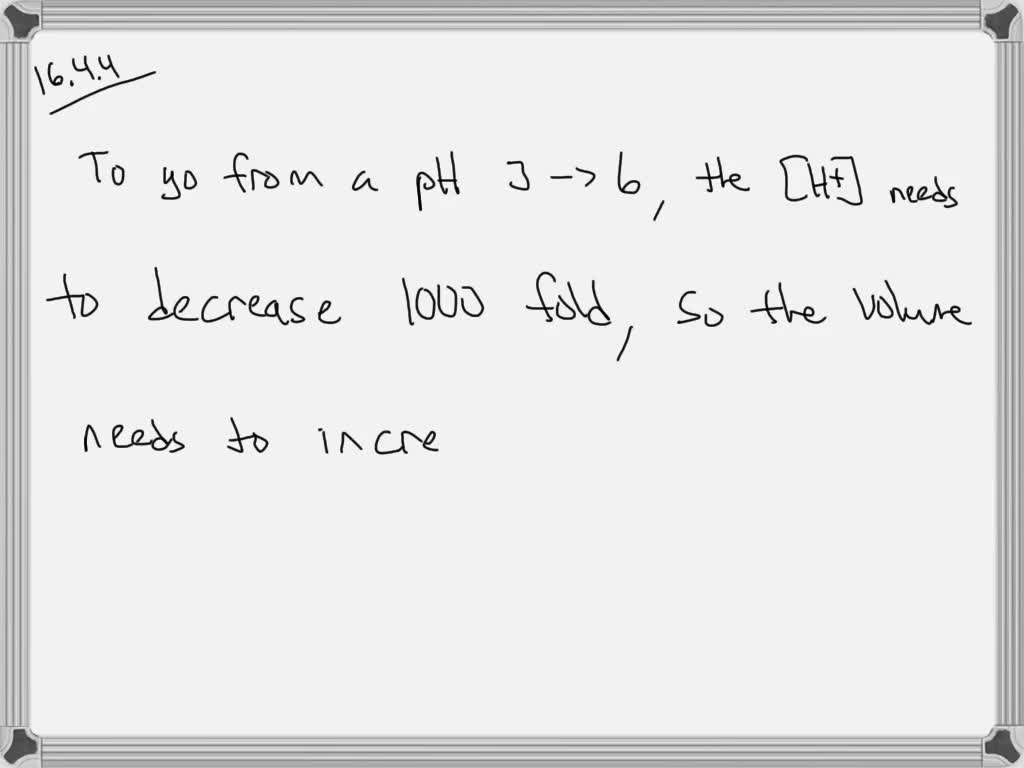 16.4.4
To go from a pH 3 -> 6, the [H+] needs
to decrease 1000 fold, so the volume
needs to incre